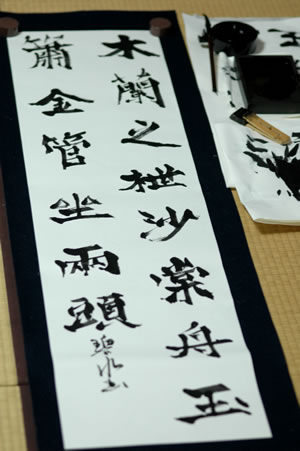 木蘭之枻沙棠舟玉
簫金管坐兩頭